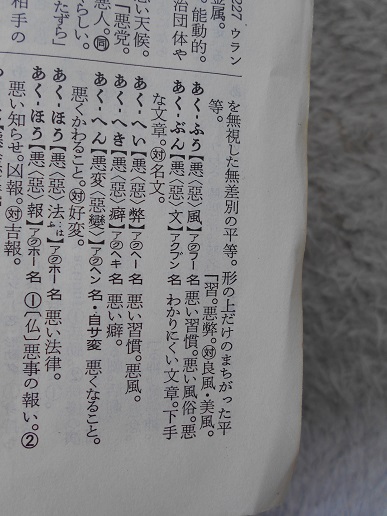 を無視した無差別の平等。形の上だけのまちがった平
等。
「習。悪弊。対良風・美風。
あく‐ふう【悪〈惡〉風】アクフー 名 悪い習慣。悪い風俗。悪
あく‐ぶん【悪〈惡〉文】アクブン 名 わかりにくい文章。下手
な文章。対名文。
あく‐へい【悪〈惡〉弊】アクヘー 名 悪い習慣。悪風。
あく‐へき【悪〈惡〉癖】アクヘキ 名 悪い癖。
あく‐へん【悪変〈惡變〉】アクヘン 名・自サ変 悪くなること。
悪くかわること。対好変。
あく‐ほう【悪〈惡〉法】アクホー 名 悪い法律。
あく‐ほう【悪〈惡〉報】アクホー 名 ①〔仏〕悪事の報い。②
悪い知らせ。凶報。対吉報。
227 ウラン
金属。
能動的。
治団体や
悪い天候。
「悪党。
悪人。同
らしい。
たずら」
相手の